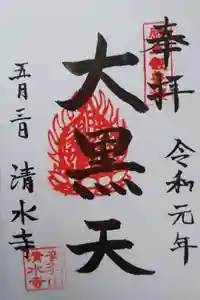 奉拝
令和元年
大黒天
五月三日
清水寺
清水寺